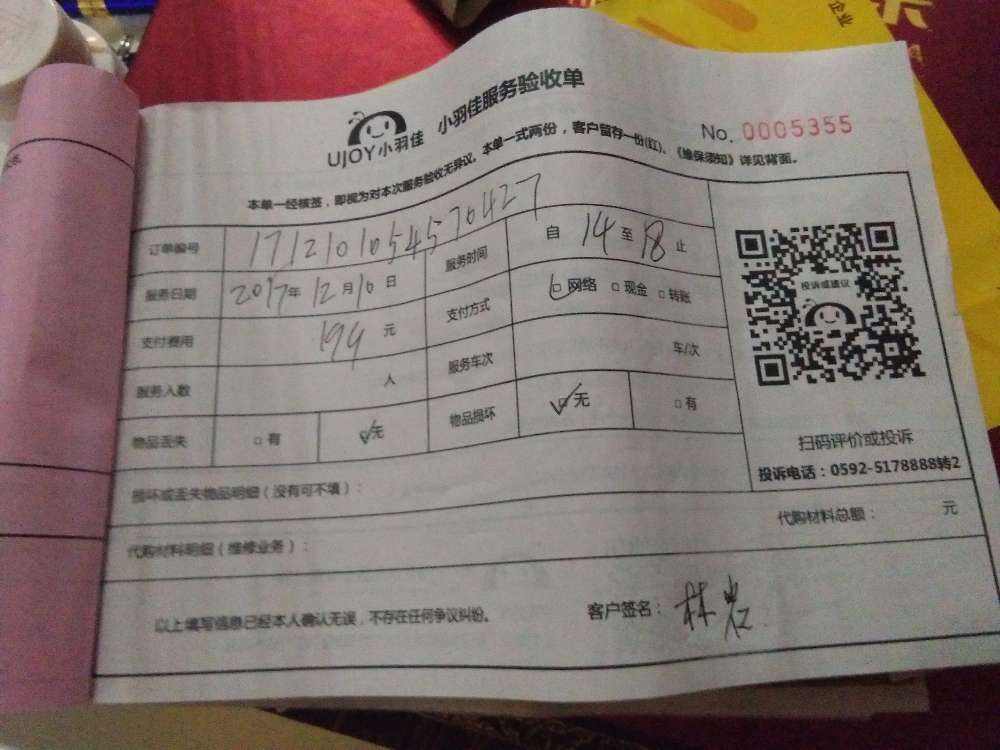 企业
UJOY小羽佳 小羽佳服务验收单
No. 0005355
本单一经核签，即视为对本次服务验收无异议。本单一式两份，客户留存一份(红)。《维保须知》详见背面。
订单编号 171210105457 6427 服务时间 自 14 至 18 止
服务日期 2017年 12月10日 支付方式 □网络 □现金 □转账
支付费用 194 元 服务车次 车/次
服务人数 人
物品丢失 □有 ☑无 物品损坏 ☑无 □有
投诉或建议
扫码评价或投诉
投诉电话：0592-5178888转2
损坏或丢失物品明细（没有可不填）：
代购材料明细（维修业务）： 代购材料总额： 元
以上填写信息已经本人确认无误，不存在任何争议纠纷。 客户签名：林